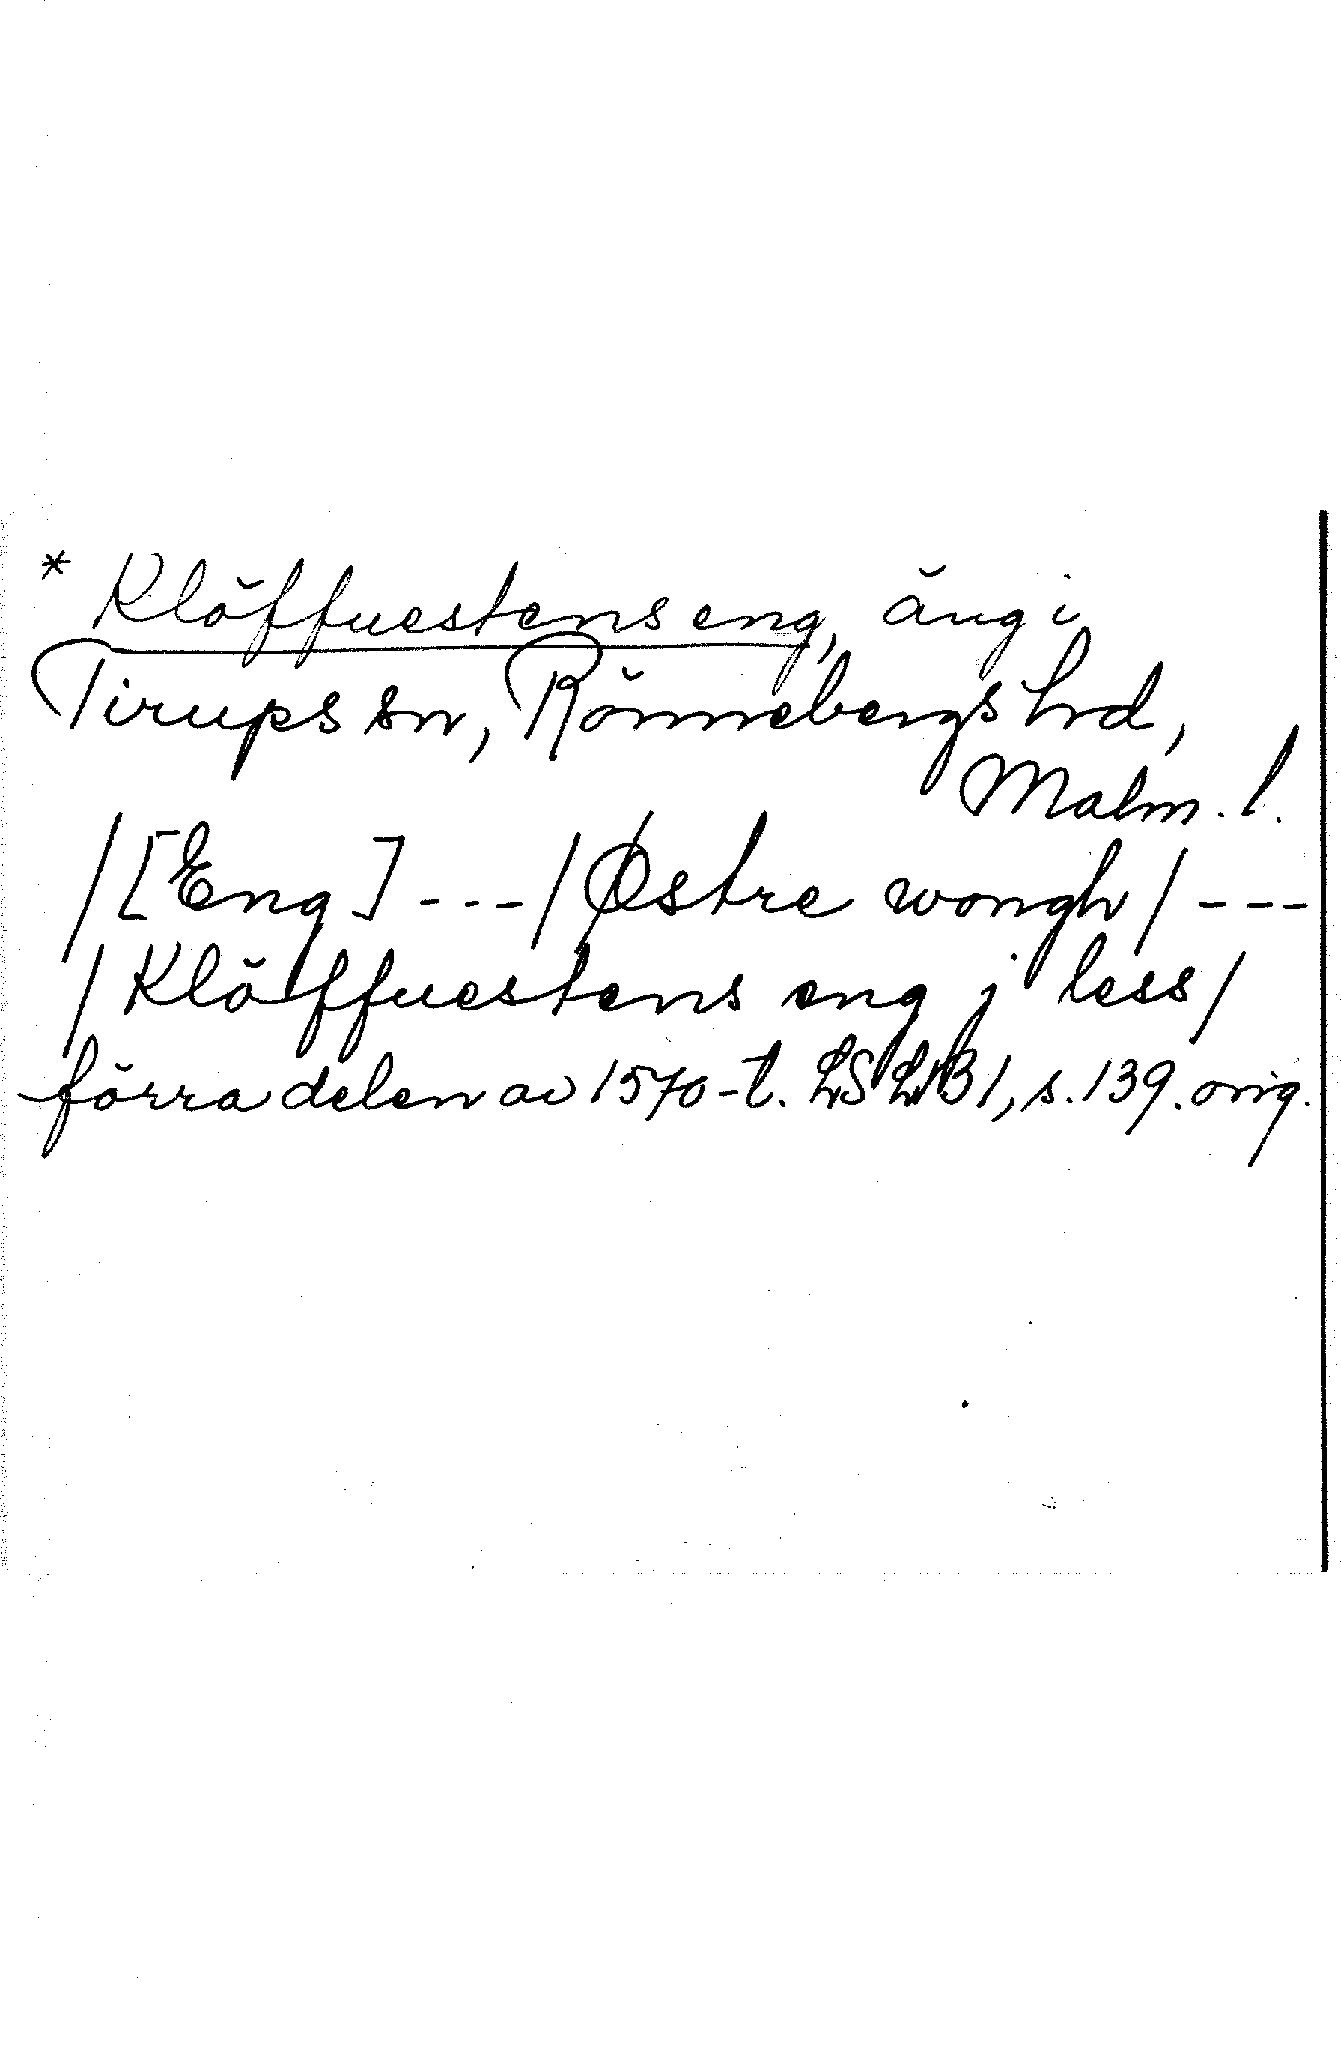 * Klöffuestens eng, äng i
Tirups sn, Rönnebergs hrd,
Malm. l.
/[Eng] --- / Østre wongh / ---
/ Klöffuestens eng j less /
förra delen av 1570-t. LSLJB1, s. 139. orig.